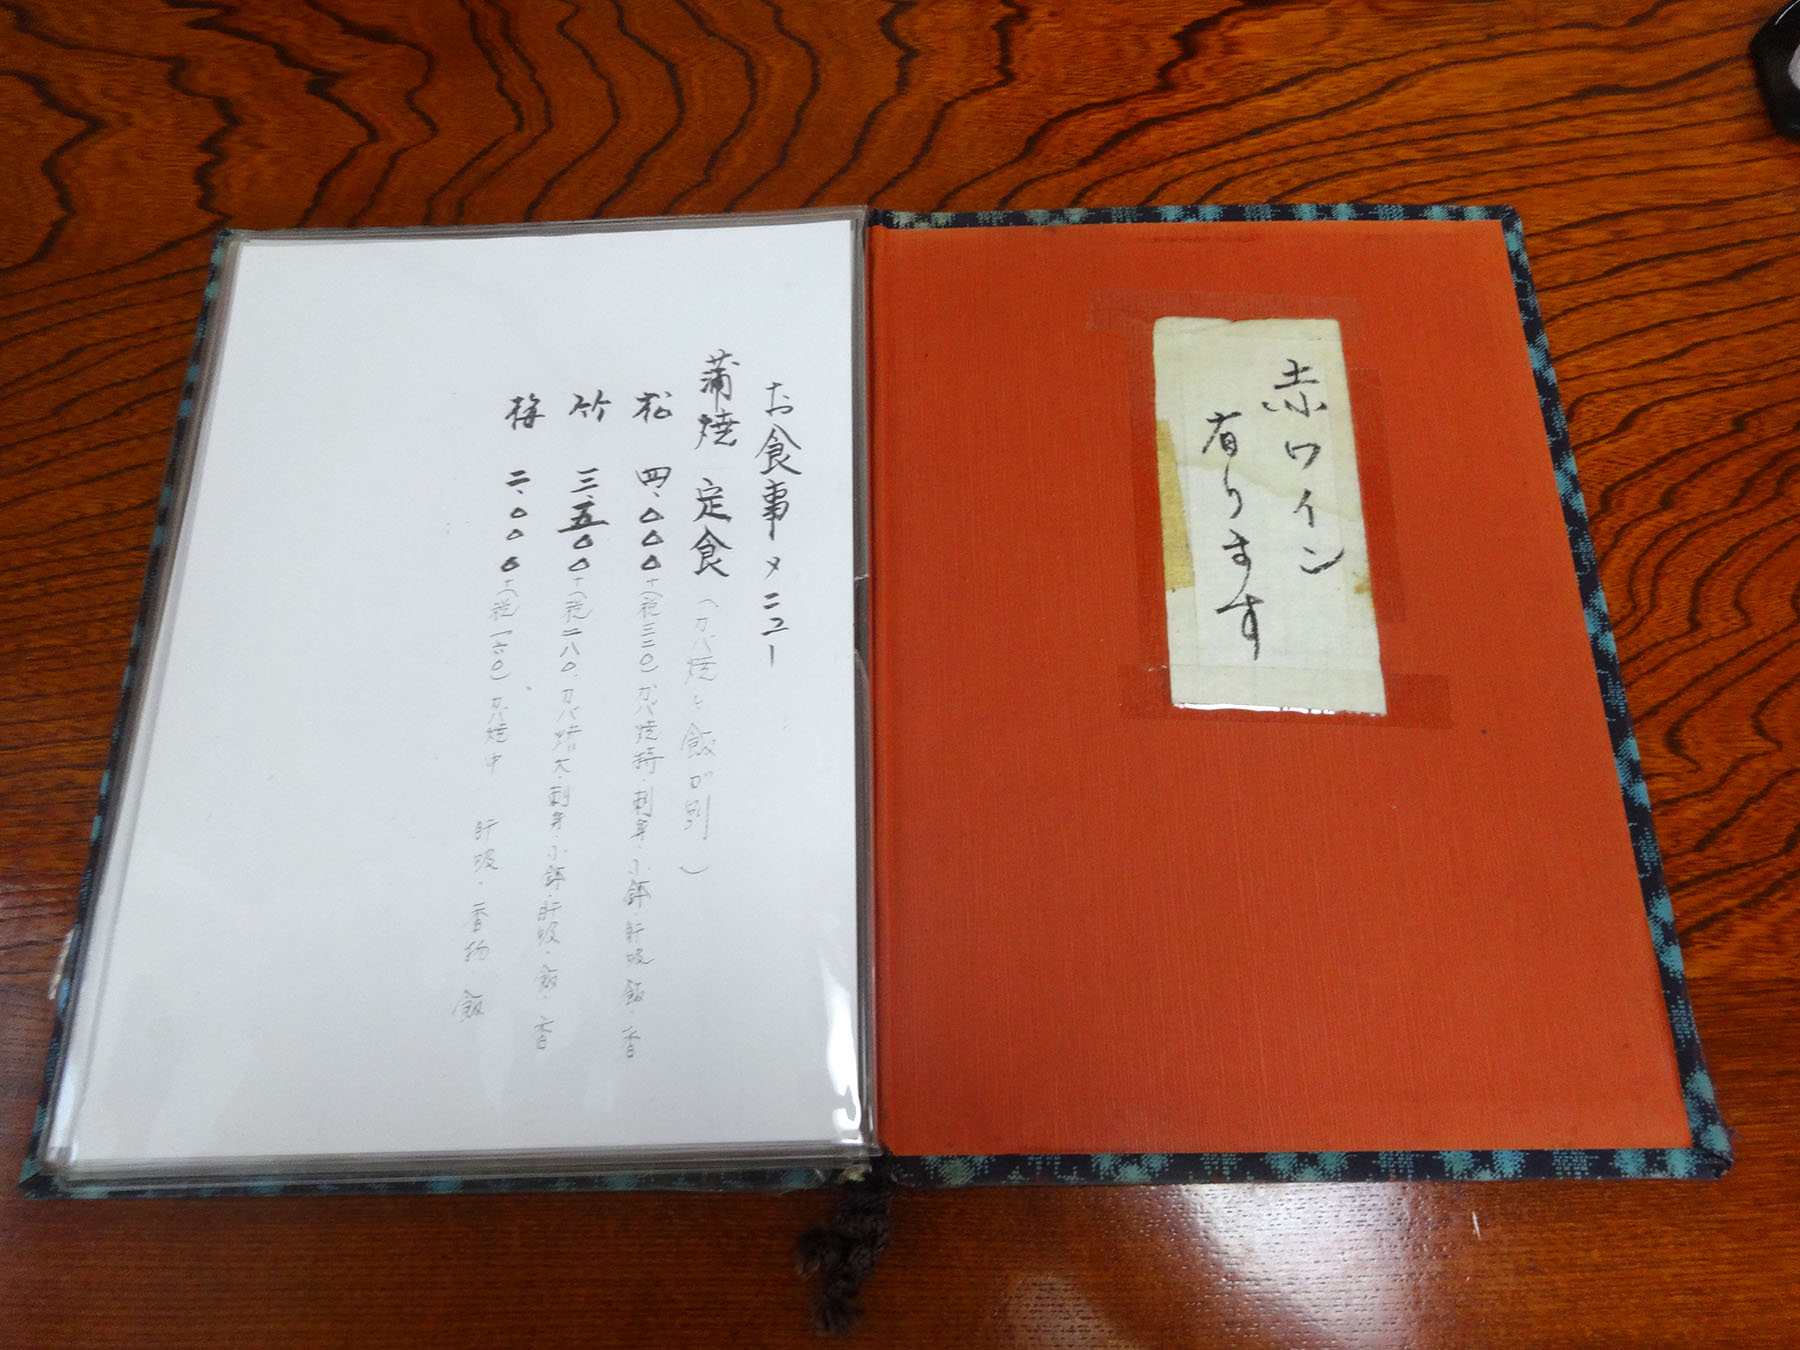 赤ワイン
有ります
お食事メニュー
蒲焼 定食 (カバ焼と飯が別)
松 四、〇〇〇 +(税三二〇) カバ焼特・刺身・小鉢・肝吸 飯・香
竹 三、五〇〇 +(税二八〇. カバ焼大・刺身・小鉢・肝吸・飯・香
梅 二、〇〇〇 +(税一六〇) カバ焼中 肝吸・香物 飯